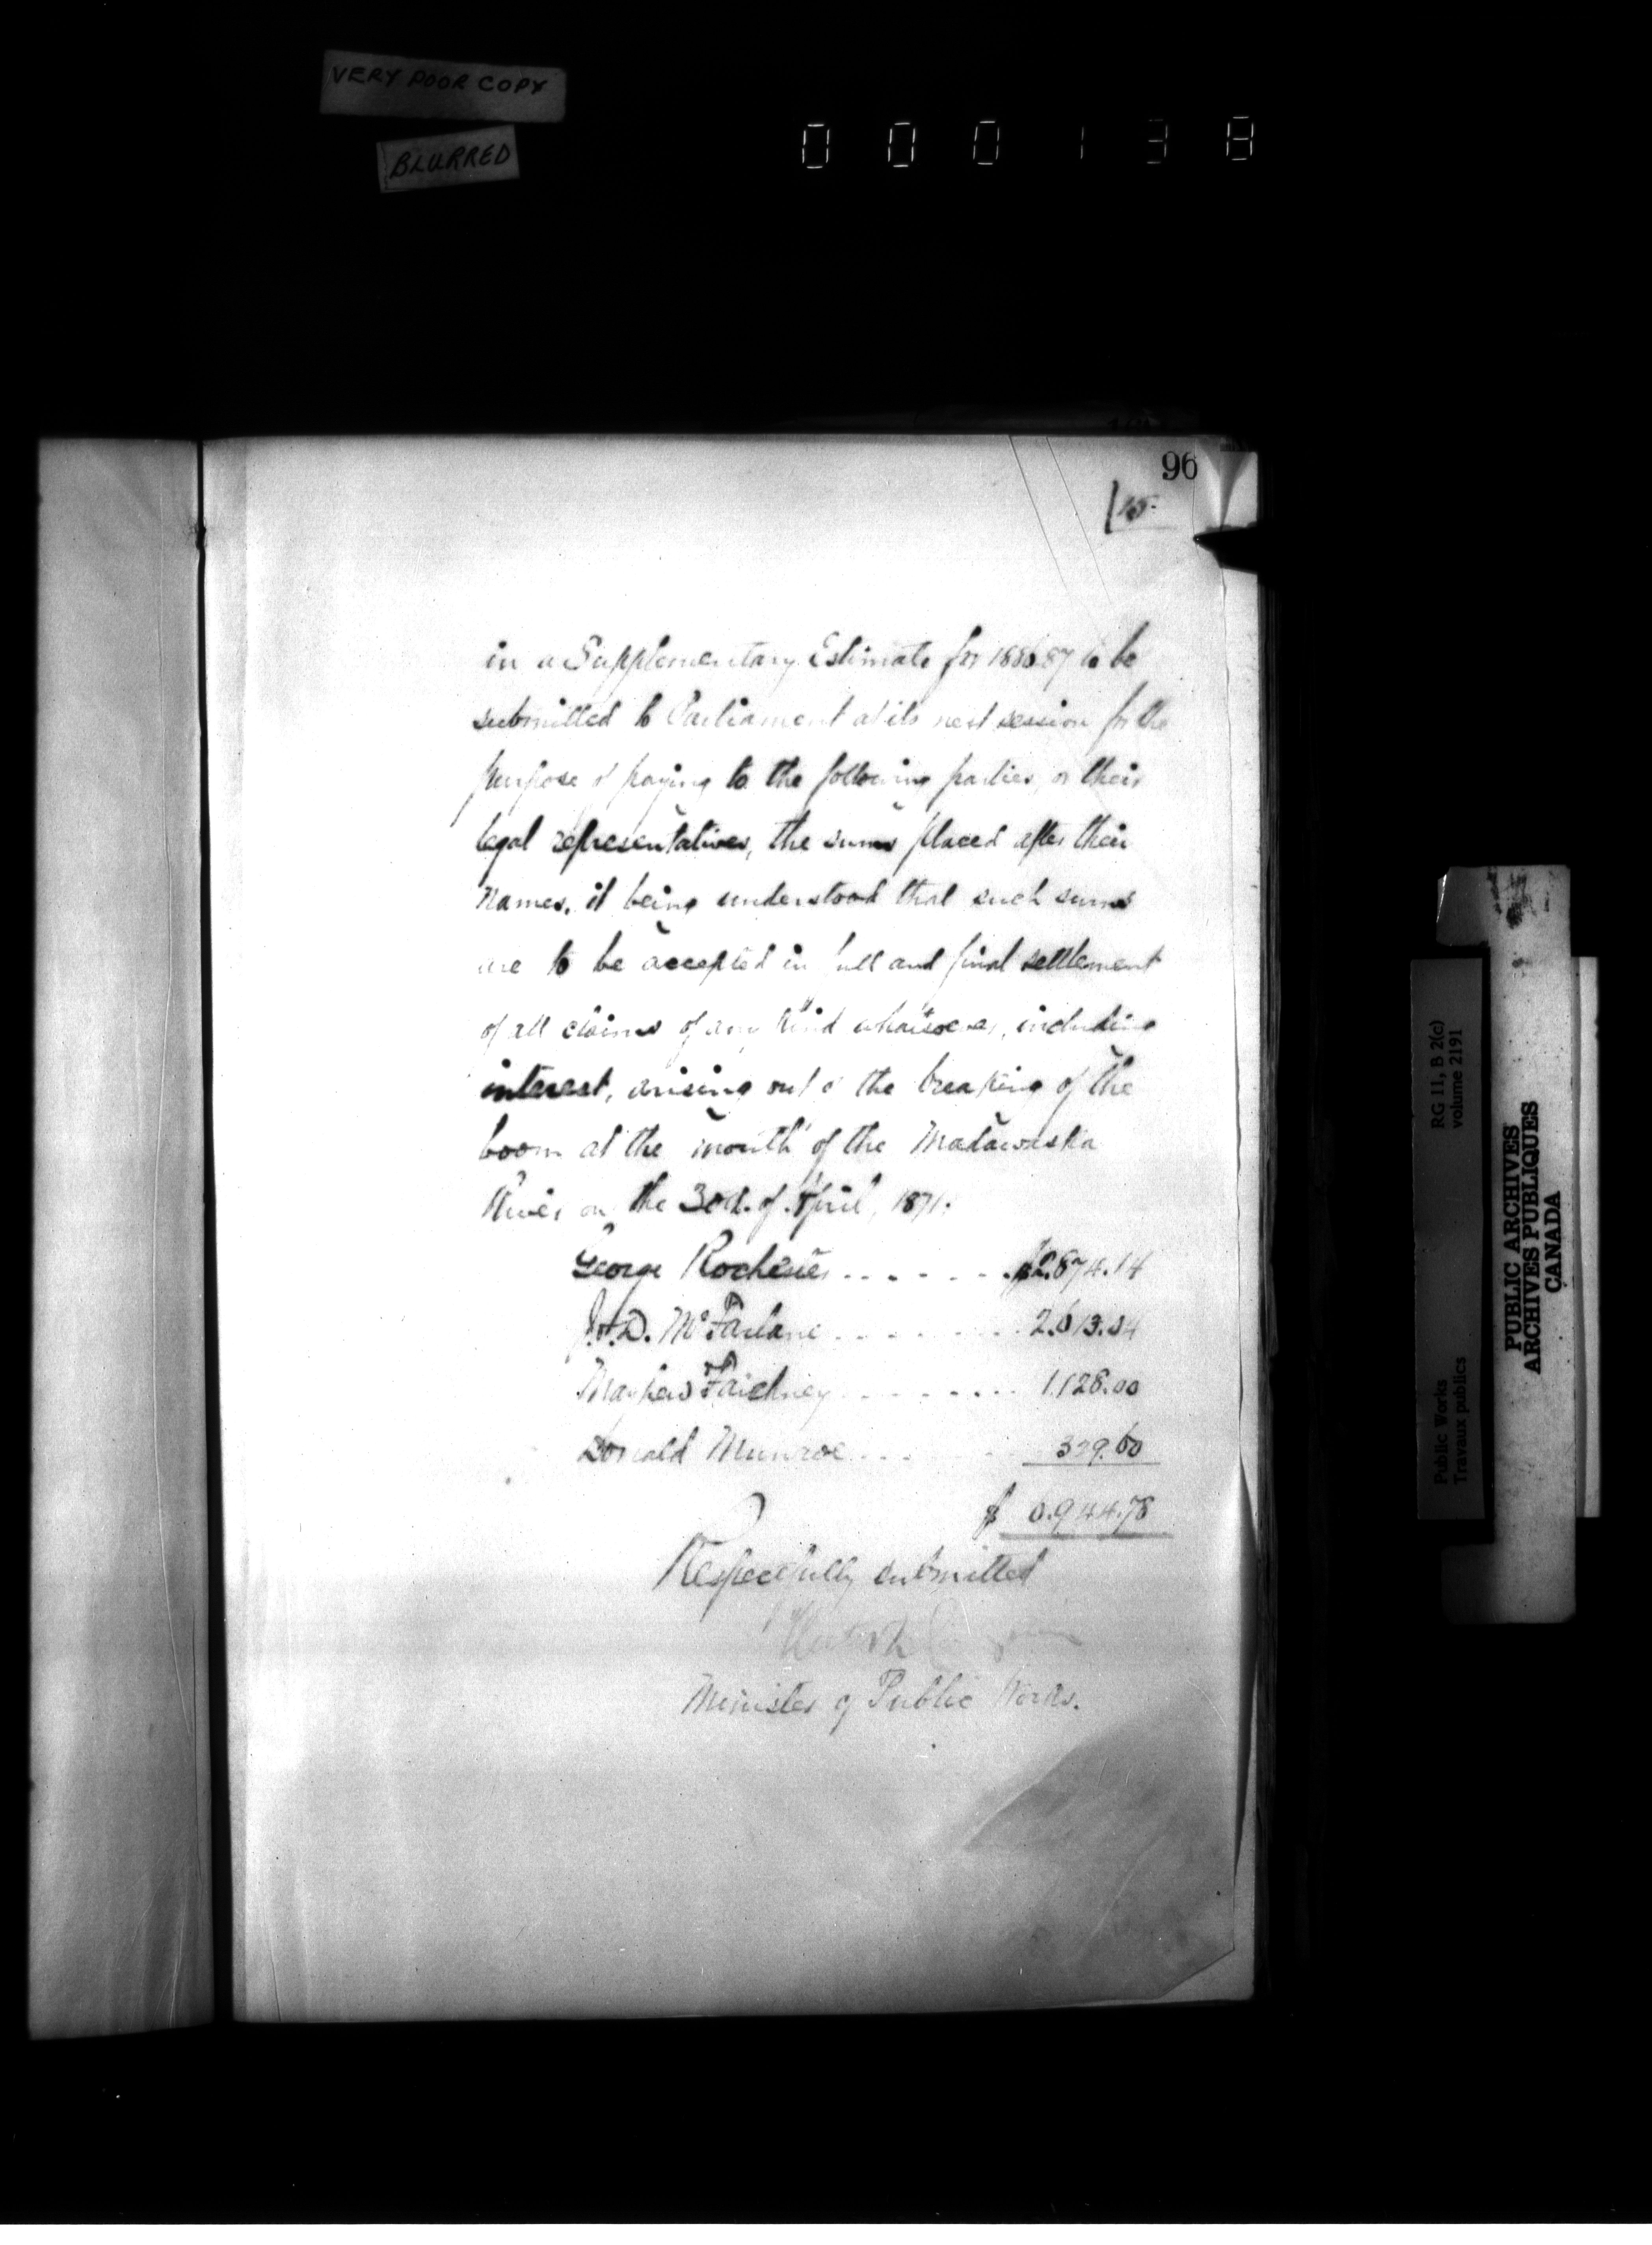 VERY POOR COPY
BLURRED
000138
96
in a Supplementary Estimate for 1886.87 to be
submitted to Parliament at its next session for the
purpose of paying to the following parties, or their
legal representatives, the sums placed after their
names, it being understood that such sums
are to be accepted in full and final settlement
of all claims of any kind whatsoever, including
interest, arising out of the breaking of the
boom at the mouth of the Madawaska
River on the 30th. of April, 1871.
George Rochester ....... $2.874.14
J. & D. McFarlane ........ 2.613.04
Mathew Faichney ........ 1.128.00
Donald Munroe ... 329.60
$ 6.944.78
Respectfully submitted
Minister of Public Works.
RG 11, B 2(c)
volume 2191
Public Works
Travaux publics
PUBLIC ARCHIVES
ARCHIVES PUBLIQUES
CANADA